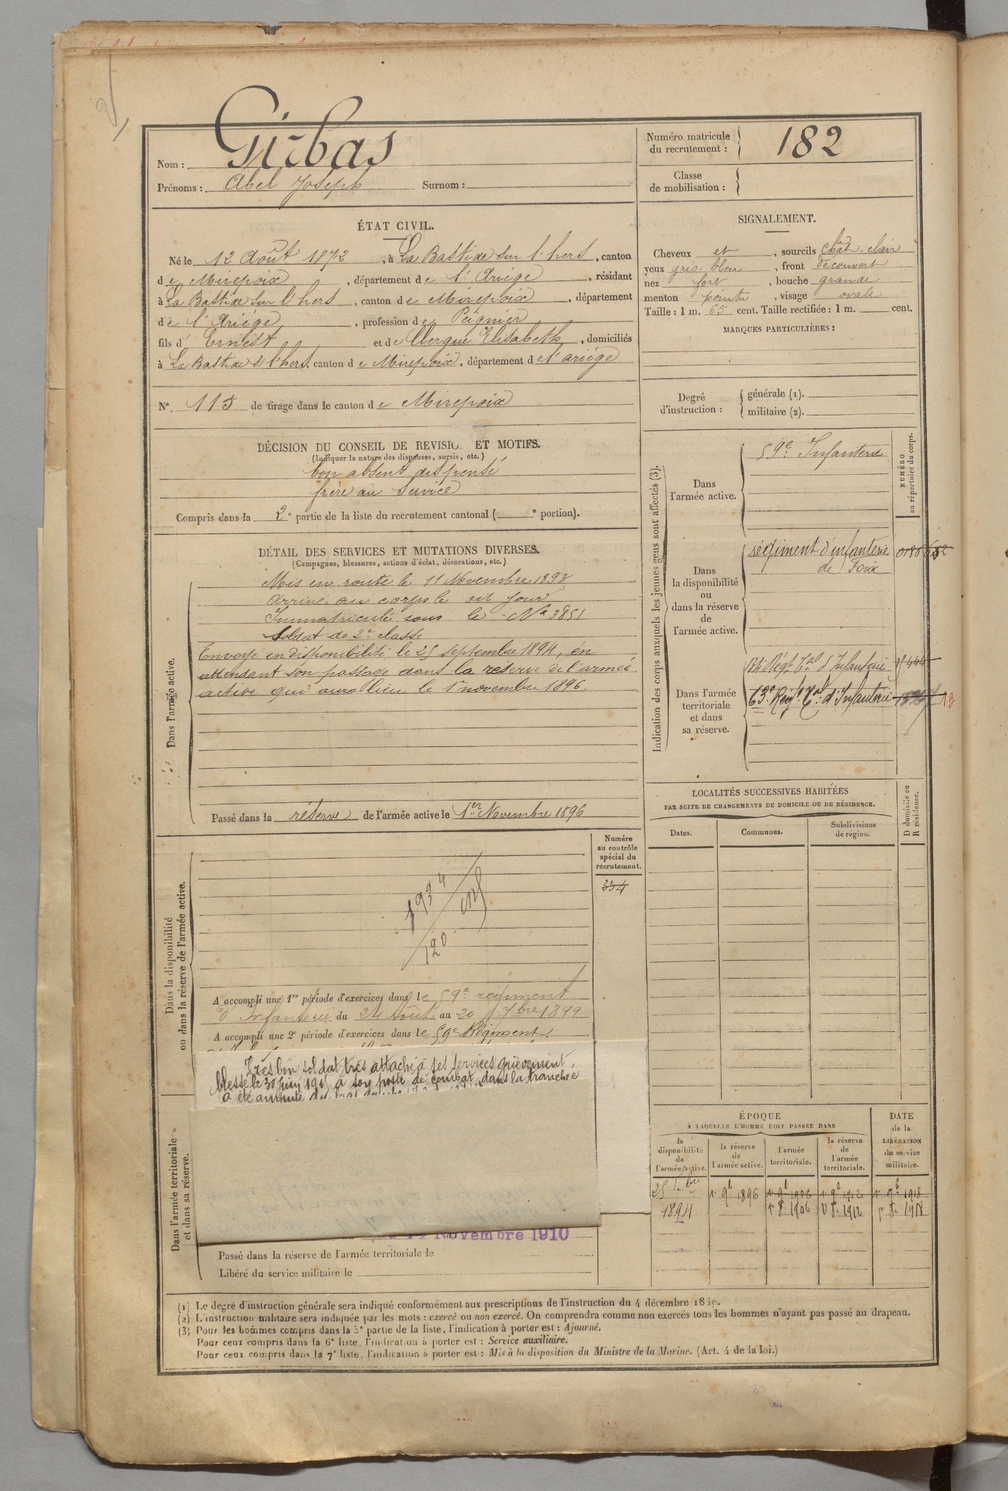 Nom : Girbas
Prénoms : Abel Joseph Surnom :
Numéro matricule du recrutement : 182
Classe de mobilisation :
ÉTAT CIVIL.
Né le 12 Août 1872, à La Bastide sur l'hers, canton
de Mirepoix, département de l'Ariège, résidant
à La Bastide sur l'hers, canton de Mirepoix, département
de l'Ariège, profession de Peignier
fils d' Ernest et de Clergue Elisabeth, domiciliés
à La Bastide s/ l'hers, canton de Mirepoix, département de l'ariège
N° 115 de tirage dans le canton de Mirepoix
DÉCISION DU CONSEIL DE REVISION ET MOTIFS.
(Indiquer la nature des dispenses, sursis, etc.)
bon absent dispensé
frère au service
Compris dans la 2e partie de la liste du recrutement cantonal ( e portion).
DÉTAIL DES SERVICES ET MUTATIONS DIVERSES.
(Campagnes, blessures, actions d'éclat, décorations, etc.)
Dans l'armée active.
Mis en route le 11 Novembre 1893
Arrivé au corps le dit jour
Immatriculé sous le N° 3851
Soldat de 2e classe
Envoyé en disponibilité le 25 septembre 1894, en
attendant son passage dans la réserve de l'armée
active qui aura lieu le 1er novembre 1896.
Passé dans la réserve de l'armée active le 1er Novembre 1896
Numéro au contrôle spécial du recrutement.
334
Dans la disponibilité ou dans la réserve de l'armée active.
1934
120
A accompli une 1re période d'exercices dans le 59e régiment
d'Infanterie du 24 Août au 20 7bre 1899
A accompli une 2e période d'exercices dans le 59e Régiment
Très bon soldat très attaché à ses services grièvement
blessé le 30 juin 1915 à son poste de combat dans la tranchée
a été amputé
Dans l'armée territoriale et dans sa réserve.
Novembre 1910
Passé dans la réserve de l'armée territoriale le
Libéré du service militaire le
SIGNALEMENT.
Cheveux et, sourcils chât. clair
yeux gris bleu, front découvert
nez fort, bouche grande
menton pointu, visage ovale
Taille : 1 m. 65 cent. Taille rectifiée : 1 m. cent.
MARQUES PARTICULIÈRES :
Degré d'instruction : générale (1).
militaire (2).
Indication des corps auxquels les jeunes gens sont affectés (3).
NUMÉRO au répertoire du corps.
Dans l'armée active.
59e Infanterie
Dans la disponibilité ou dans la réserve de l'armée active.
régiment d'infanterie
de Foix
Dans l'armée territoriale et dans sa réserve.
Régt Tal d'Infanterie
63e Régt Tal d'Infanterie
LOCALITÉS SUCCESSIVES HABITÉES
PAR SUITE DE CHANGEMENTS DE DOMICILE OU DE RÉSIDENCE.
Dates. Communes. Subdivisions de région. D domicile ou R résidence.
ÉPOQUE
À LAQUELLE L'HOMME DOIT PASSER DANS
DATE de la LIBÉRATION du service militaire.
la disponibilité de l'armée active. la réserve de l'armée active. l'armée territoriale. la réserve de l'armée territoriale.
25 7bre 1894
1er 9b 1896
1er 9b 1906 1er 9b 1912 1er 9b 1918
1er 8b 1906 1er 8b 1912 1er 8b 1918
(1) Le degré d'instruction générale sera indiqué conformément aux prescriptions de l'instruction du 4 décembre 1889.
(2) L'instruction militaire sera indiquée par les mots : exercé ou non exercé. On comprendra comme non exercés tous les hommes n'ayant pas passé au drapeau.
(3) Pour les hommes compris dans la 5e partie de la liste, l'indication à porter est : Ajourné.
Pour ceux compris dans la 6e liste, l'indication à porter est : Service auxiliaire.
Pour ceux compris dans la 7e liste, l'indication à porter est : Mis à la disposition du Ministre de la Marine. (Art. 4 de la loi.)